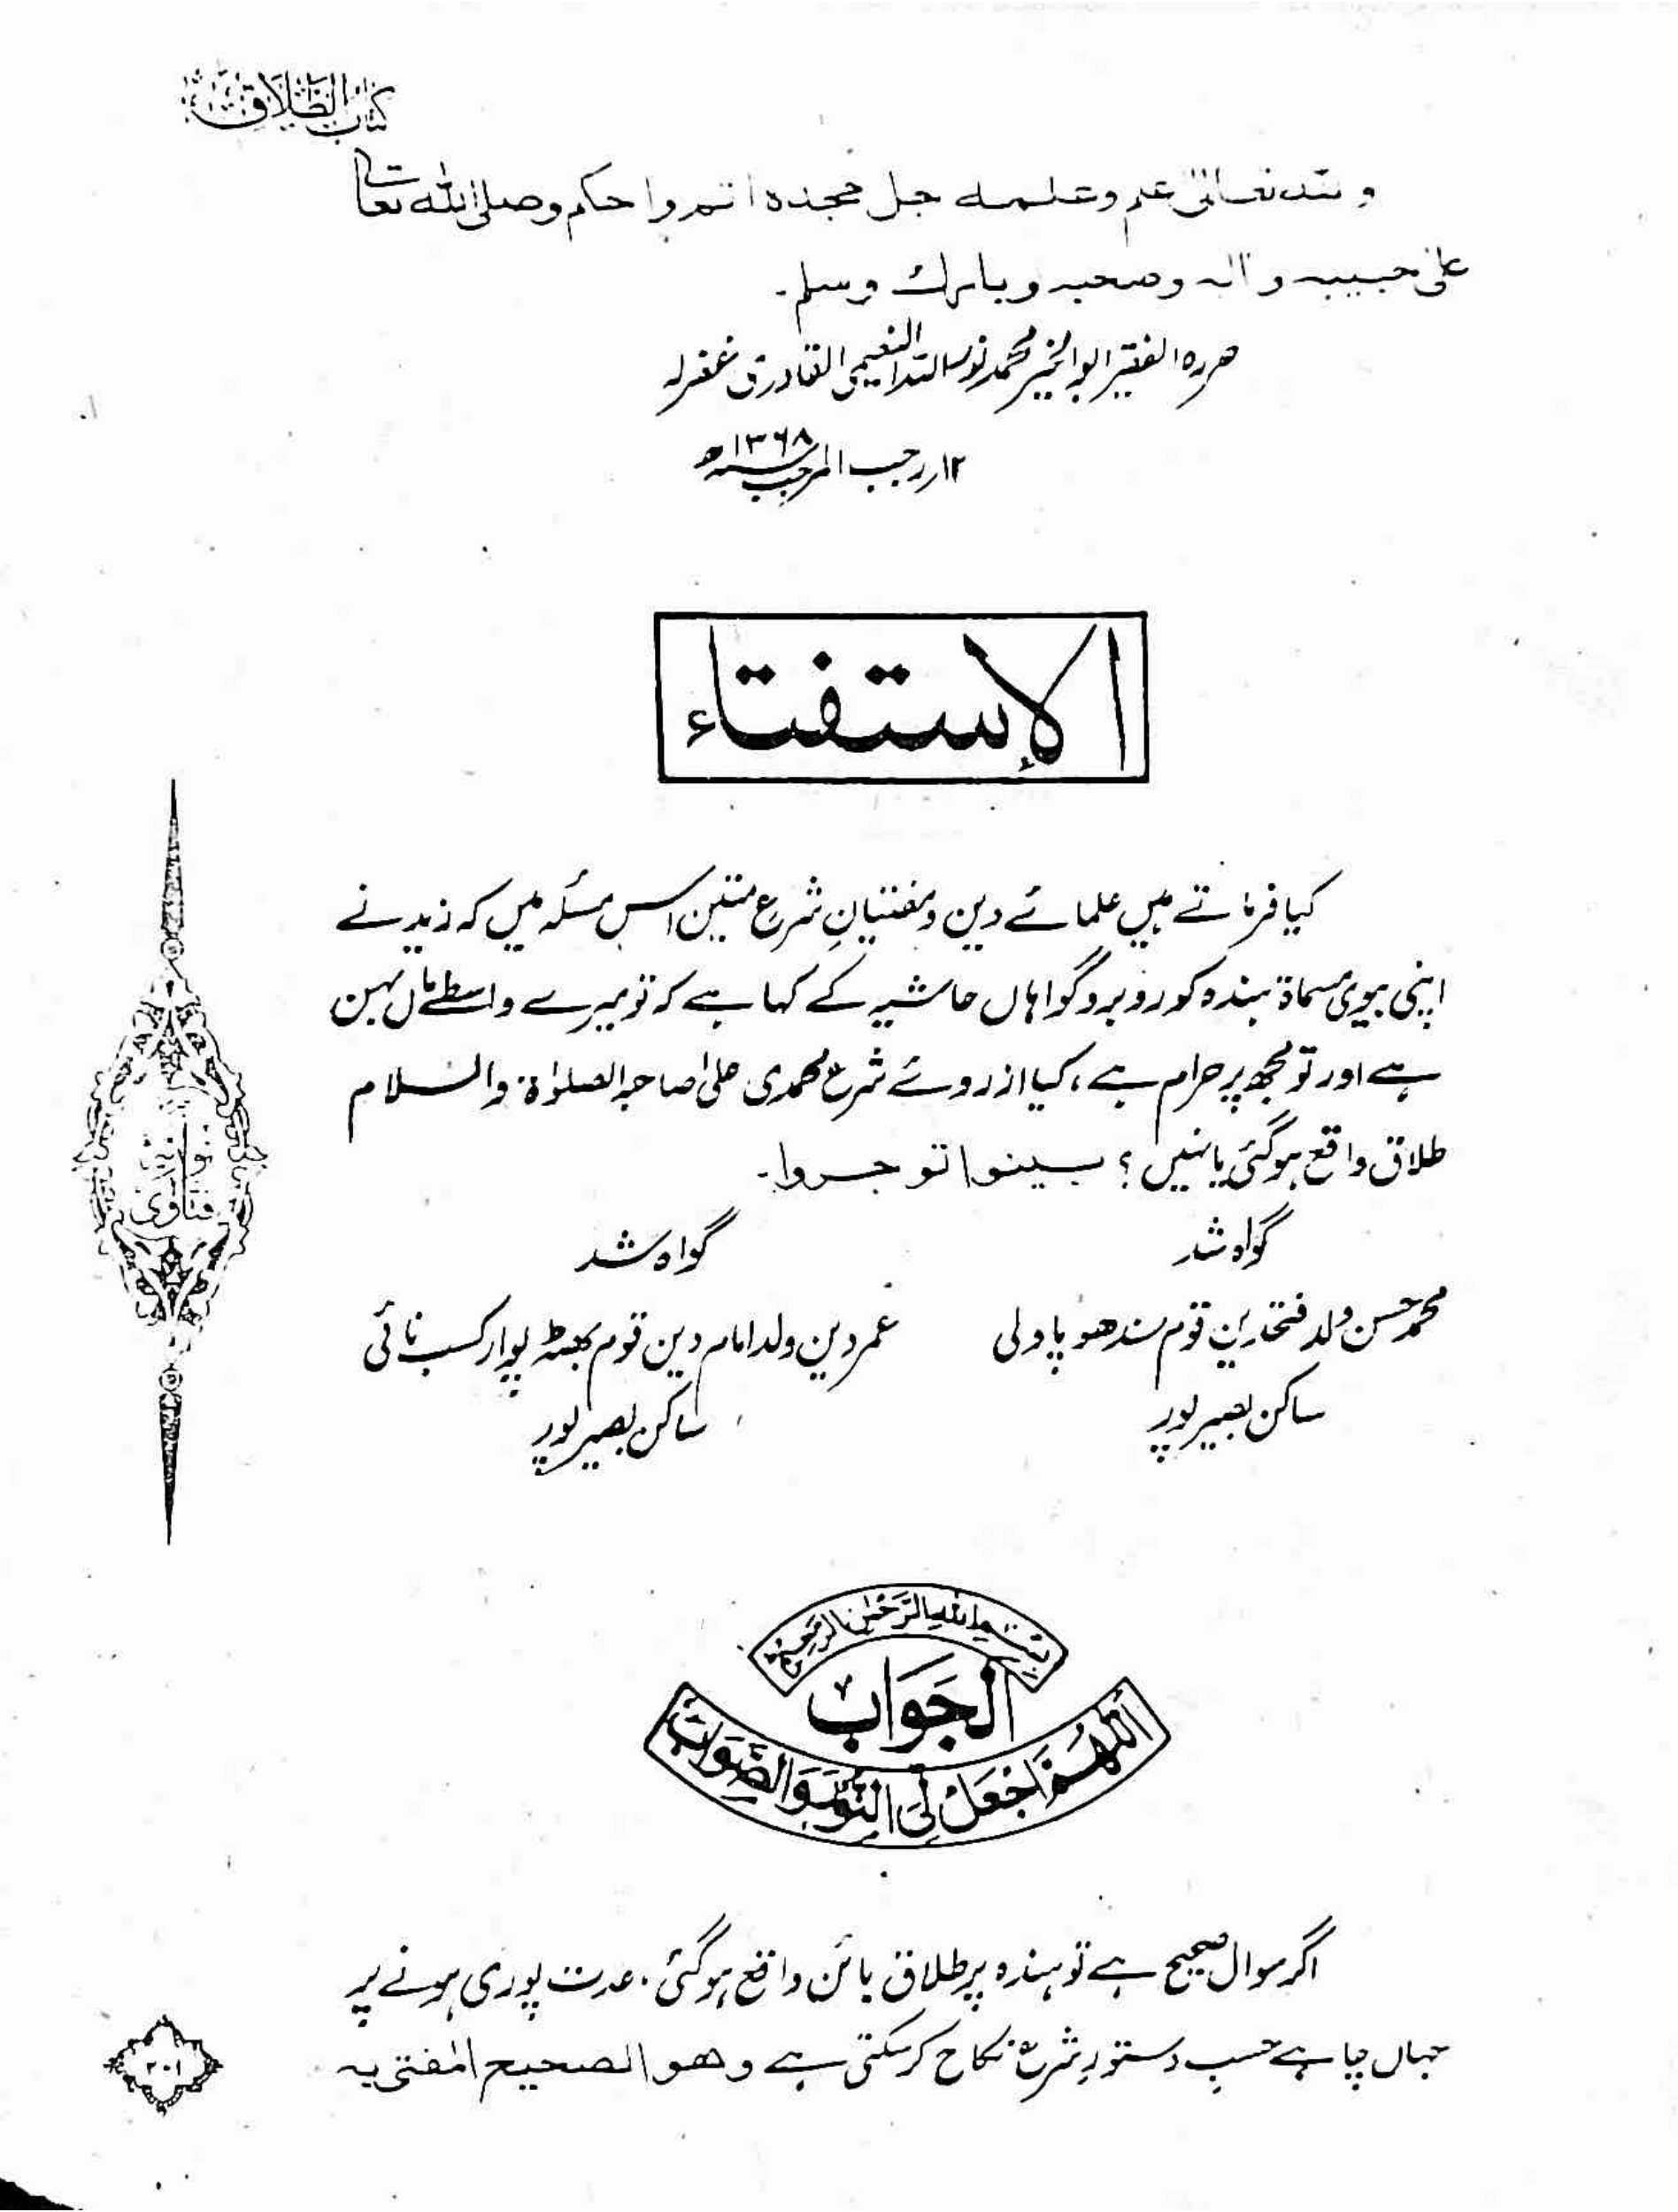 کتاب الطلاق
واللہ تعالیٰ اعلم وعلمہ جل مجدہ اتم واحکم وصلی اللہ تعالیٰ
علیٰ حبیبہ واٰلہ وصحبہ وبارک وسلم۔
حررہ الفقیر ابوالخیر محمد نور اللہ النعیمی القادری غفرلہ
۱۲ رجب المرجب ۱۳۶۸ھ
الإستفتاء
کیا فرماتے ہیں علمائے دین ومفتیانِ شرع متین اس مسئلہ میں کہ زید نے
اپنی بیوی مسماۃ ہندہ کو روبرو گواہاں حاشیہ کے کہا ہے کہ تو میرے واسطے ماں بہن
ہے اور تو مجھ پر حرام ہے، کیا ازروئے شرع محمدی علیٰ صاحبہ الصلوٰۃ والسلام
طلاق واقع ہوگئی یا نہیں؟ بینوا توجروا۔
گواہ شد
گواہ شد
محمد حسن ولد فتحدین قوم سندھو پاولی
عمر دین ولد امام دین قوم بھٹہ پوار کسب نائی
ساکن بصیرپور
ساکن بصیرپور
نوریہ
فتاویٰ
بِسْمِ اللهِ الرَّحْمٰنِ الرَّحِيْمِ
الجَوَابُ
اَللّٰهُمَّ اجْعَلْ لِيَ النُّوْرَ وَالصَّوَابَ
اگر سوال صحیح ہے تو ہندہ پر طلاق بائن واقع ہوگئی، عدت پوری ہونے پر
جہاں چاہے حسبِ دستورِ شرع نکاح کرسکتی ہے وھو الصحیح المفتی بہ
۲۰۱